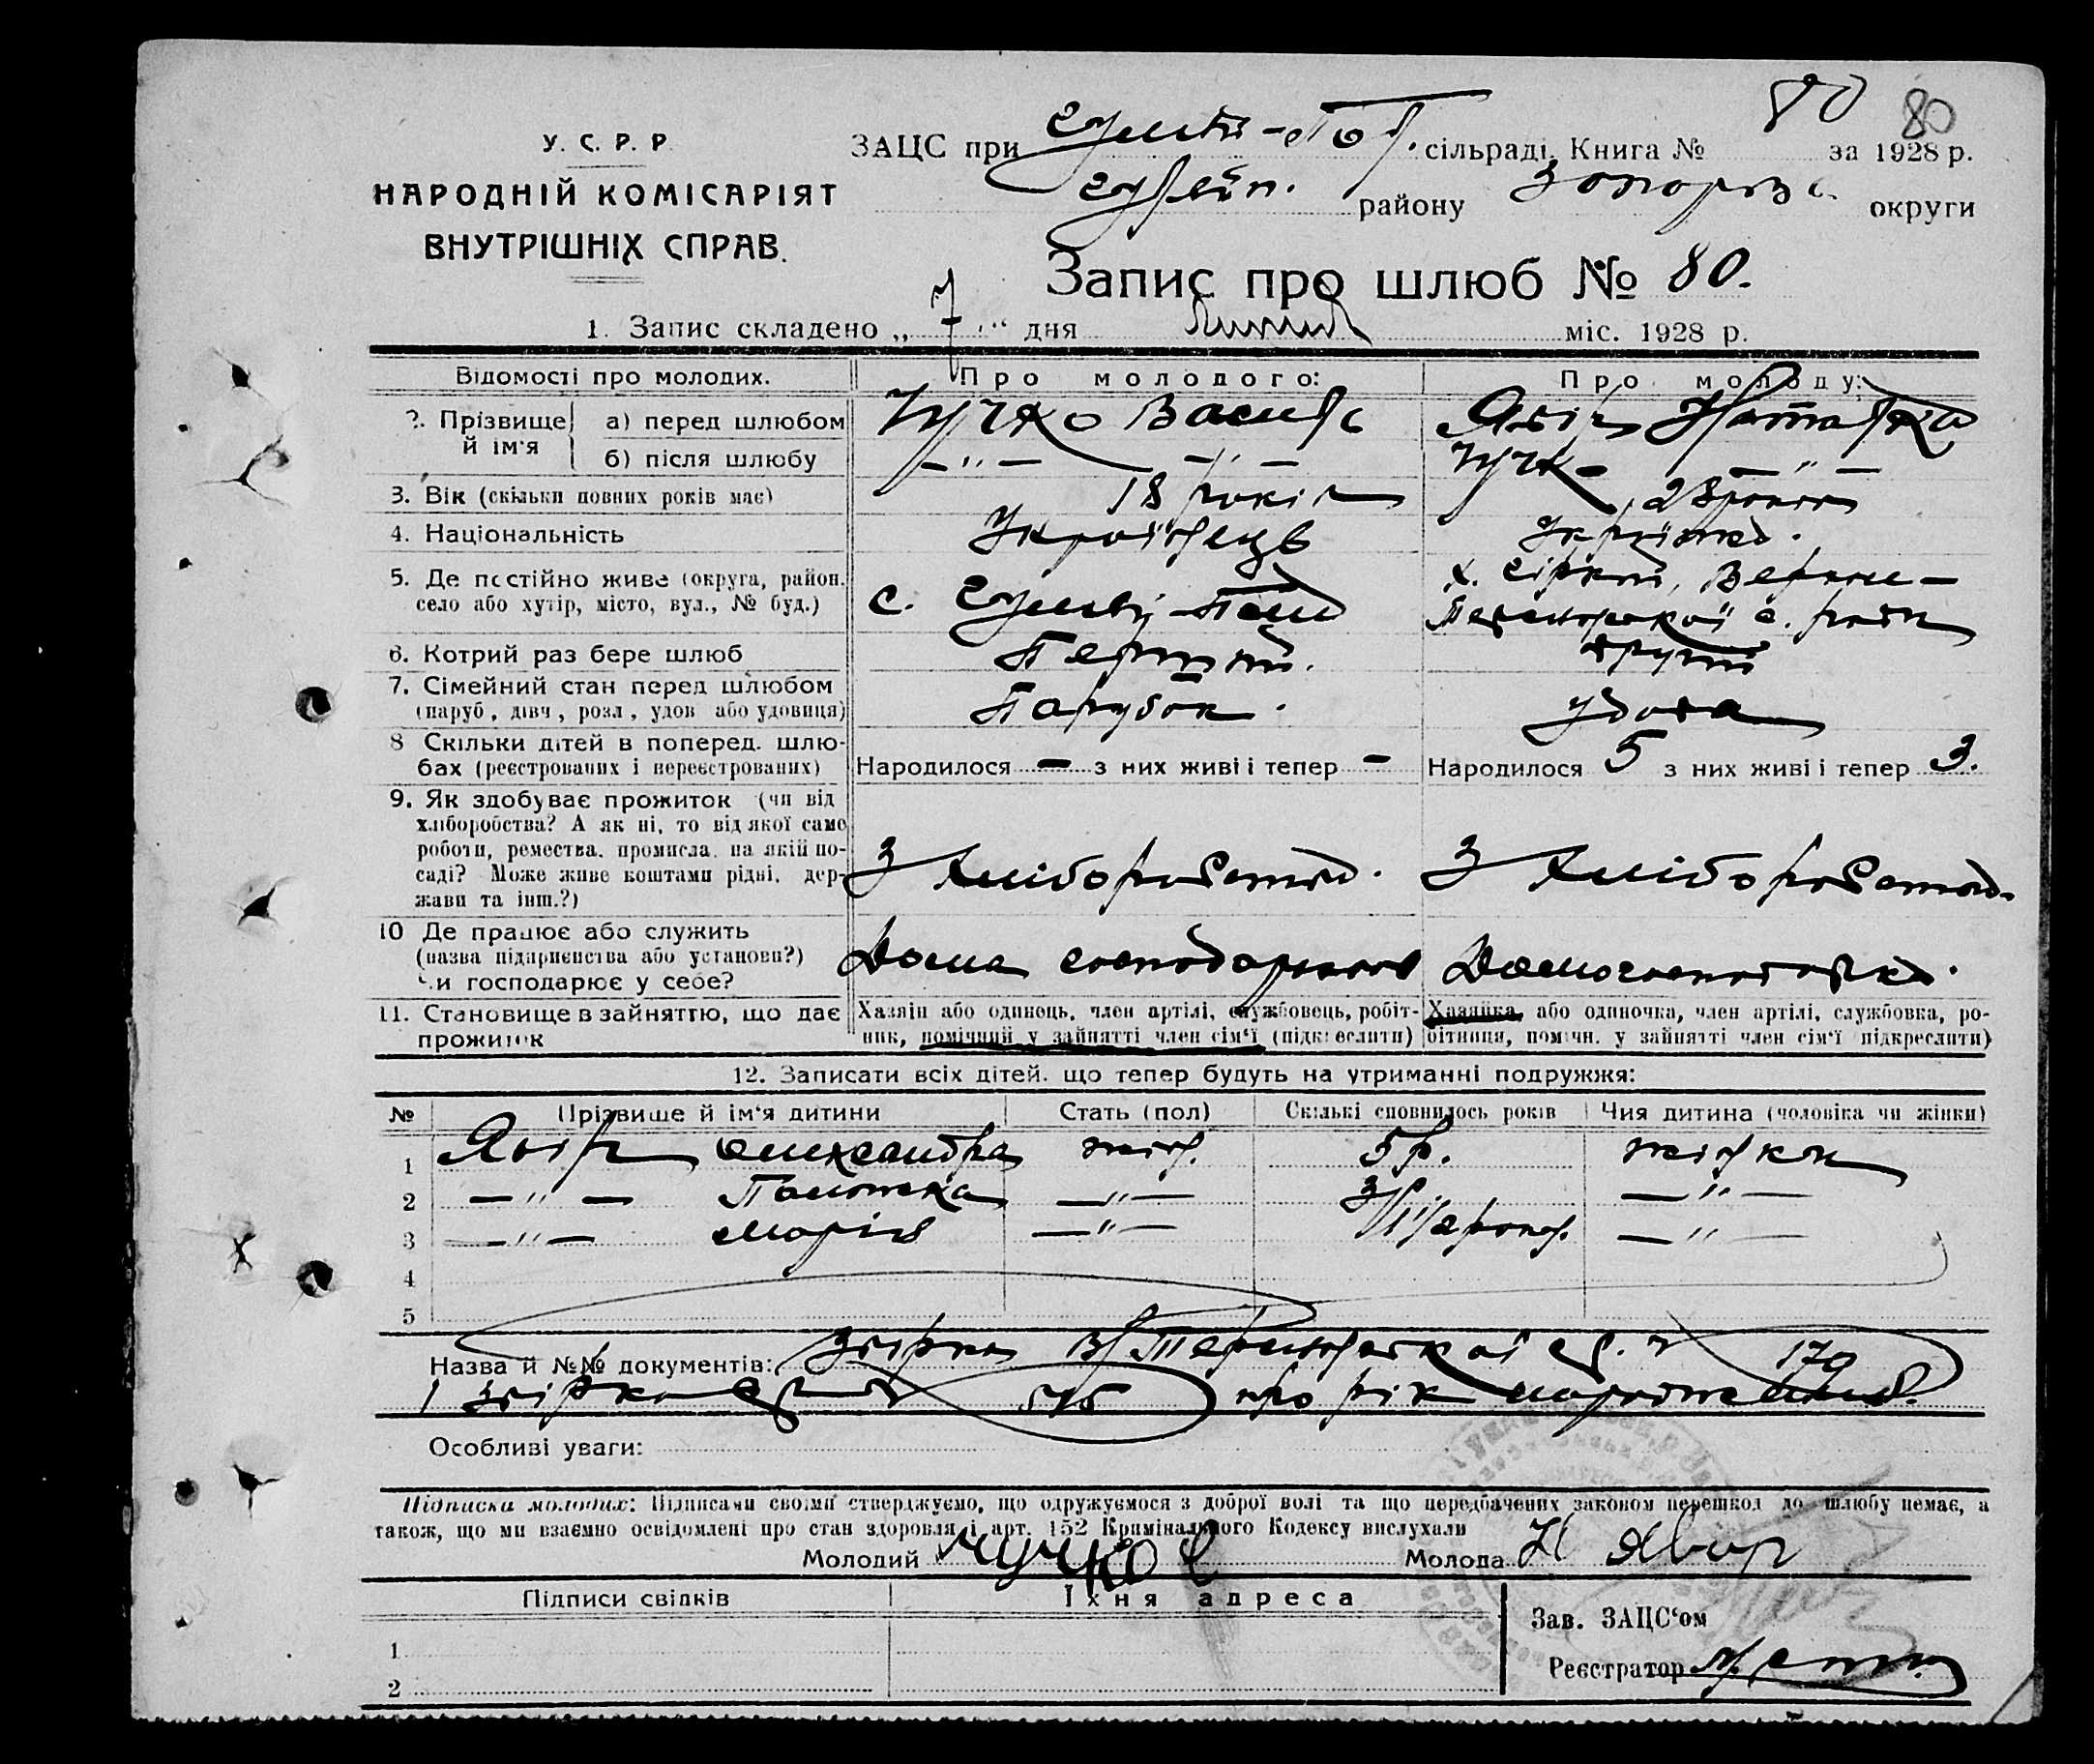 80 80
У. С. Р. Р
НАРОДНІЙ КОМІСАРІЯТ
ВНУТРІШНІХ СПРАВ.
ЗАЦС при Гуляй-Пол. сільраді. Книга № за 1928 р.
Гуляйп. району Запорізь. округи
Запис про шлюб № 80.
1. Запис складено „ 7 “ дня липня міс. 1928 р.
Відомості про молодих. Про молодого: Про молоду:
2. Прізвище й ім'я а) перед шлюбом Чучко Василь Явір Наталка
б) після шлюбу —"— —"— Чучко —"—
3. Вік (скільки повних років має) 18 років 28 років
4. Національність Українець Українка.
5. Де постійно живе (округа, район. с. Гуляй-Поле х.
село або хутір, місто, вул., № буд.) с. ради
6. Котрий раз бере шлюб Перший. другий
7. Сімейний стан перед шлюбом Парубок. удова
(паруб, дівч, розл, удов або удовиця)
8 Скільки дітей в поперед. шлю-
бах (реєстрованих і нереєстрованих) Народилося — з них живі і тепер — Народилося 5 з них живі і тепер 3.
9. Як здобуває прожиток (чи від
хліборобства? А як ні, то від якої саме
роботи, ремества, промисла, на якій по-
саді? Може живе коштами рідні, дер- З хліборобства. З хліборобства.
жави та інш.?)
10 Де працює або служить
(назва підприєнства або установи?) Дома господарює Домогосподарка.
Чи господарює у себе?
11. Становище в зайняттю, що дає Хазяїн або одинець, член артілі, службовець, робіт- Хазяйка або одиночка, член артілі, службовка, ро-
прожиток ник, помічний у зайнятті член сім'ї (підкреслити) бітниця, помічн. у зайнятті член сім'ї підкреслити)
12. Записати всіх дітей, що тепер будуть на утриманні подружжя:
№ Прізвище й ім'я дитини Стать (пол) Скількі сповнилось років Чия дитина (чоловіка чи жінки)
1 Явір Олександра жін. 5 р. жінки
2 —"— —"— 3 —"—
3 —"— Марія —"— 1 1/2 рок. —"—
4
5
Назва й №№ документів: В/Терсянської с/р. ч 170
1 про рік народження.
Особливі уваги:
Підписка молодих: Підписами своїми стверджуємо, що одружуємося з доброї волі та що передбачених законом перешкод до шлюбу немає, а
також, що ми взаємно освідомлені про стан здоровля і арт. 152 Кримінального Кодексу вислухали
Молодий Чучко В Молода Н Явир
Підписи свідків Їхня адреса
Зав. ЗАЦС'ом
1
Реєстратор
2